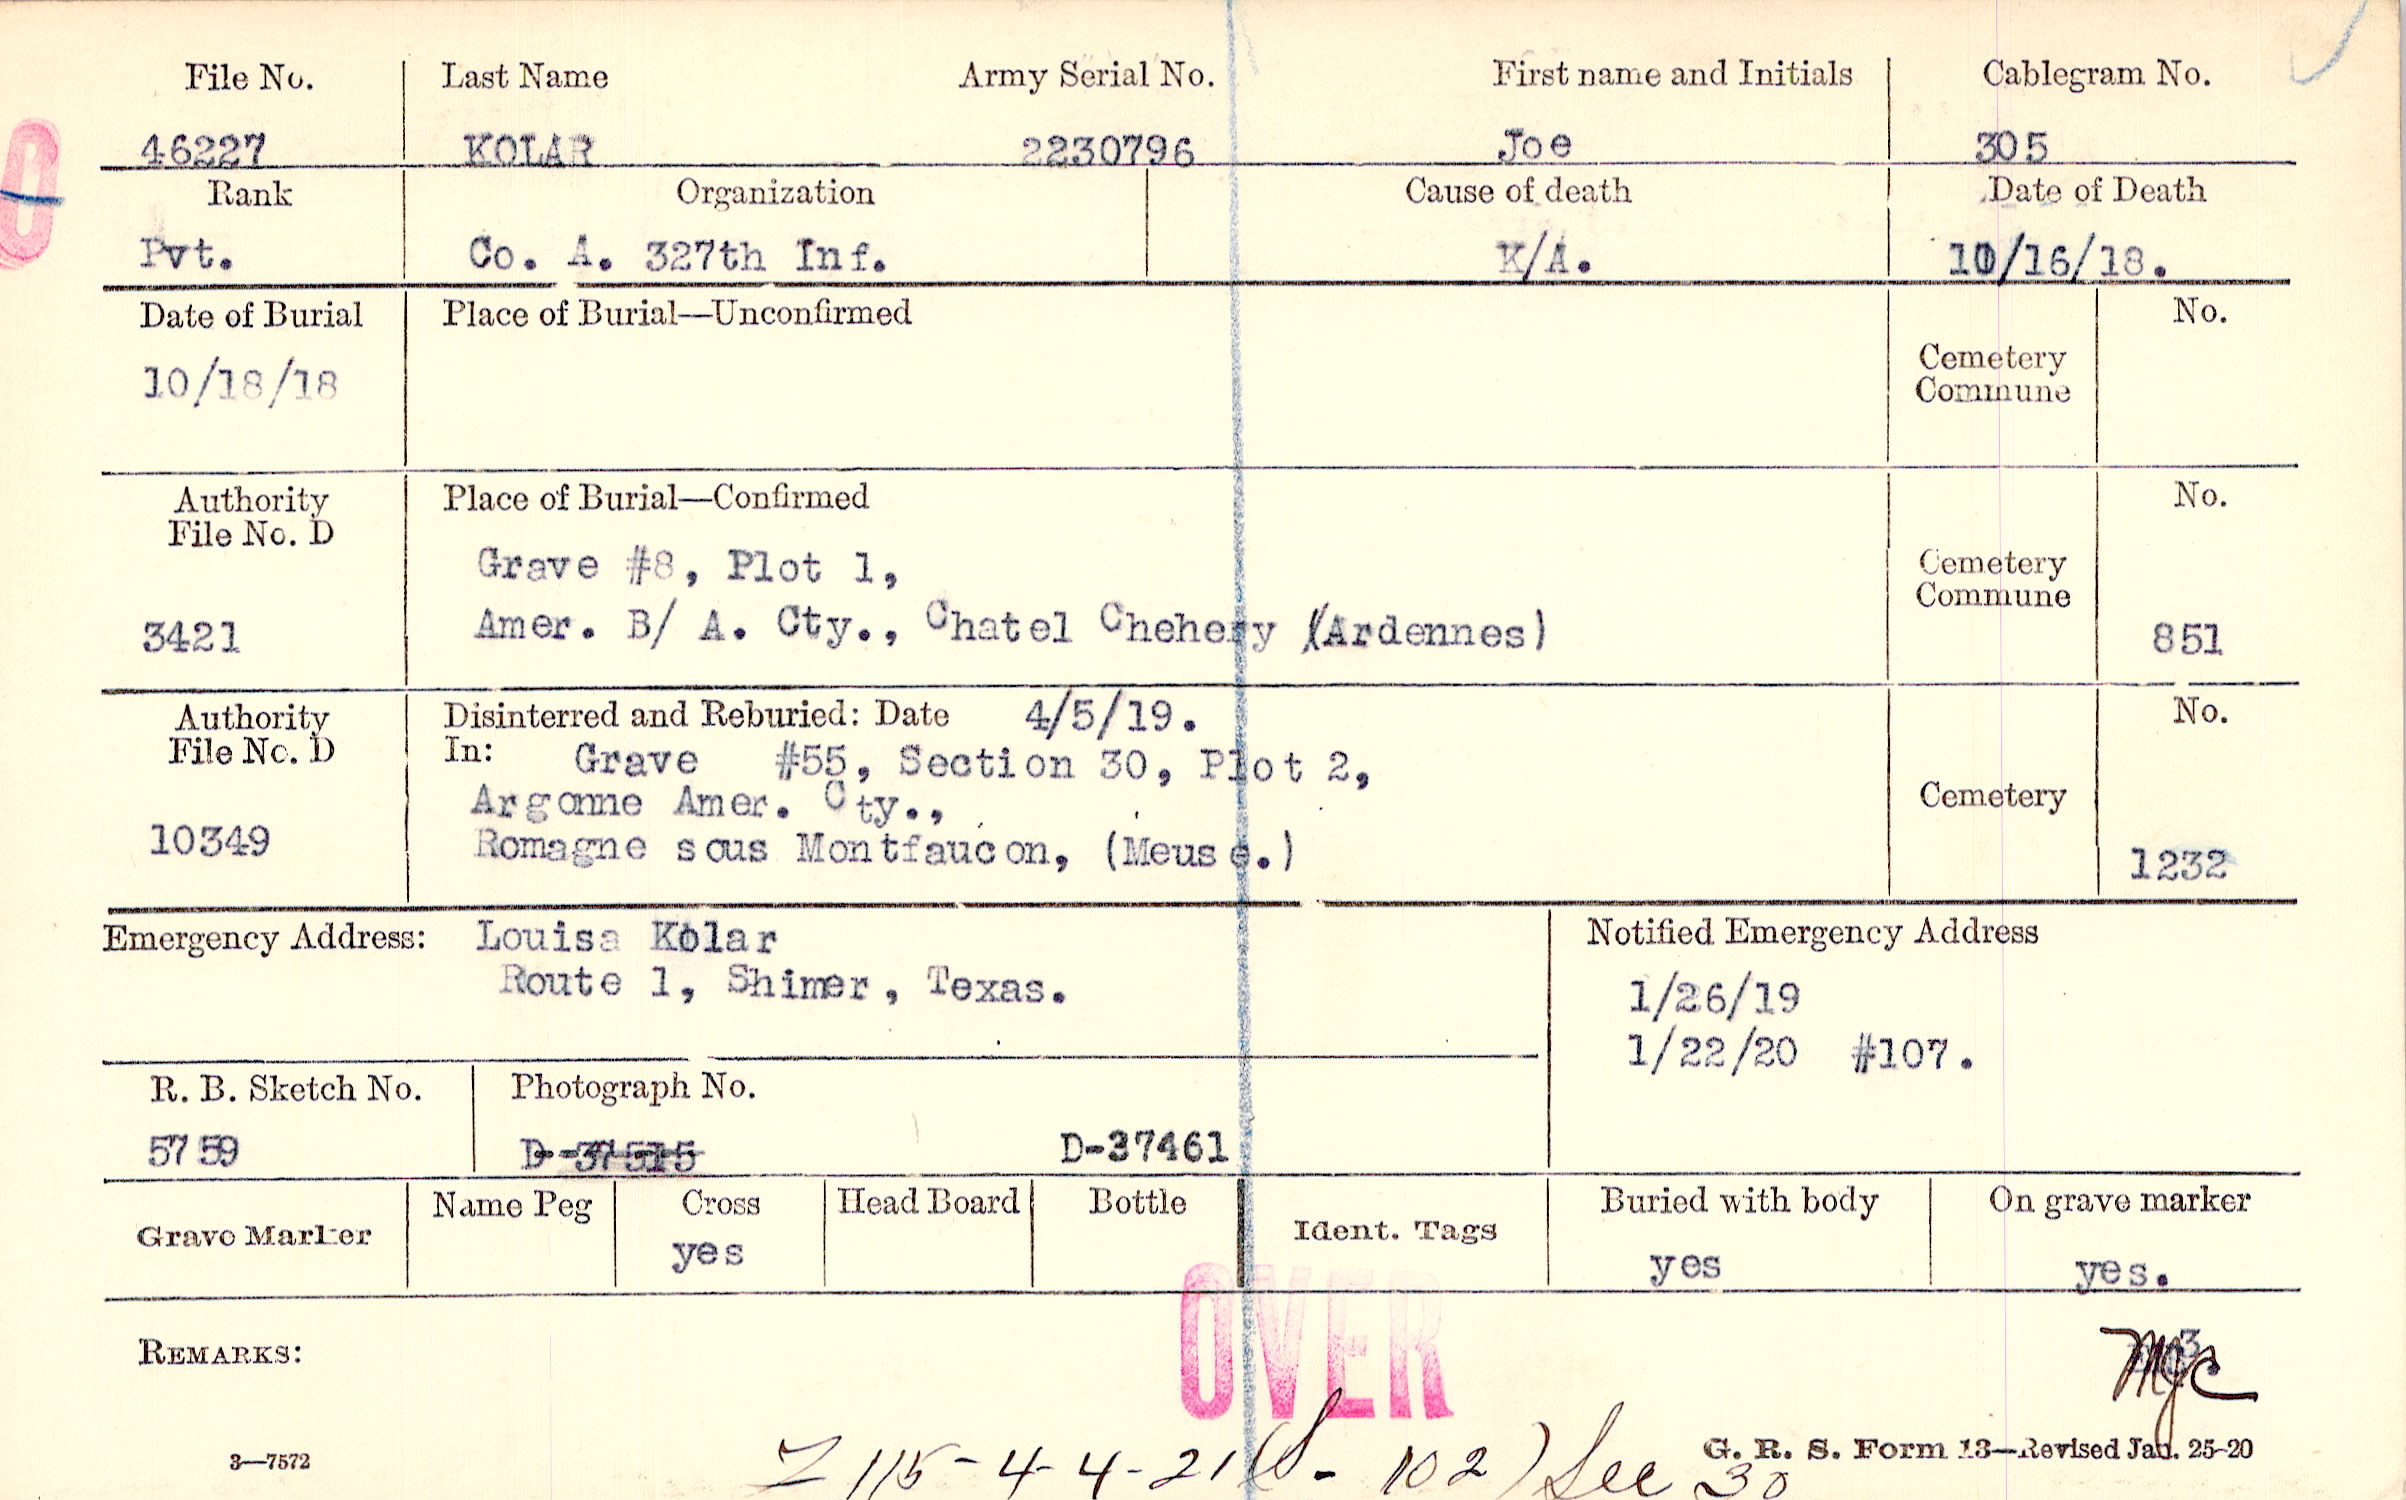 File No. Last Name Army Serial No. First name and Initials Cablegram No.
46227 KOLAR 2230796 Joe 305
Rank Organization Cause of death Date of Death
Pvt. Co. A. 327th Inf. K/A. 10/16/18.
Date of Burial Place of Burial—Unconfirmed No.
10/18/18
Cemetery
Commune
Authority Place of Burial—Confirmed No.
File No. D
Grave #8, Plot 1,
Cemetery
Commune
3421 Amer. B/ A. Cty., Chatel Chehery (Ardennes) 851
Authority Disinterred and Reburied: Date 4/5/19. No.
File No. D In: Grave #55, Section 30, Plot 2,
Argonne Amer. Cty., Cemetery
10349 Romagne sous Montfaucon, (Meuse.) 1232
Emergency Address: Louisa Kolar Notified Emergency Address
Route 1, Shimer, Texas. 1/26/19
1/22/20 #107.
R. B. Sketch No. Photograph No.
5759 D-37515 D-37461
Grave Marker Name Peg Cross Head Board Bottle Ident. Tags Buried with body On grave marker
yes yes yes.
OVER
REMARKS:
MJC
3—7572 G. R. S. Form 13—Revised Jan. 25-20
115-4-4-21 (S-102) See 30